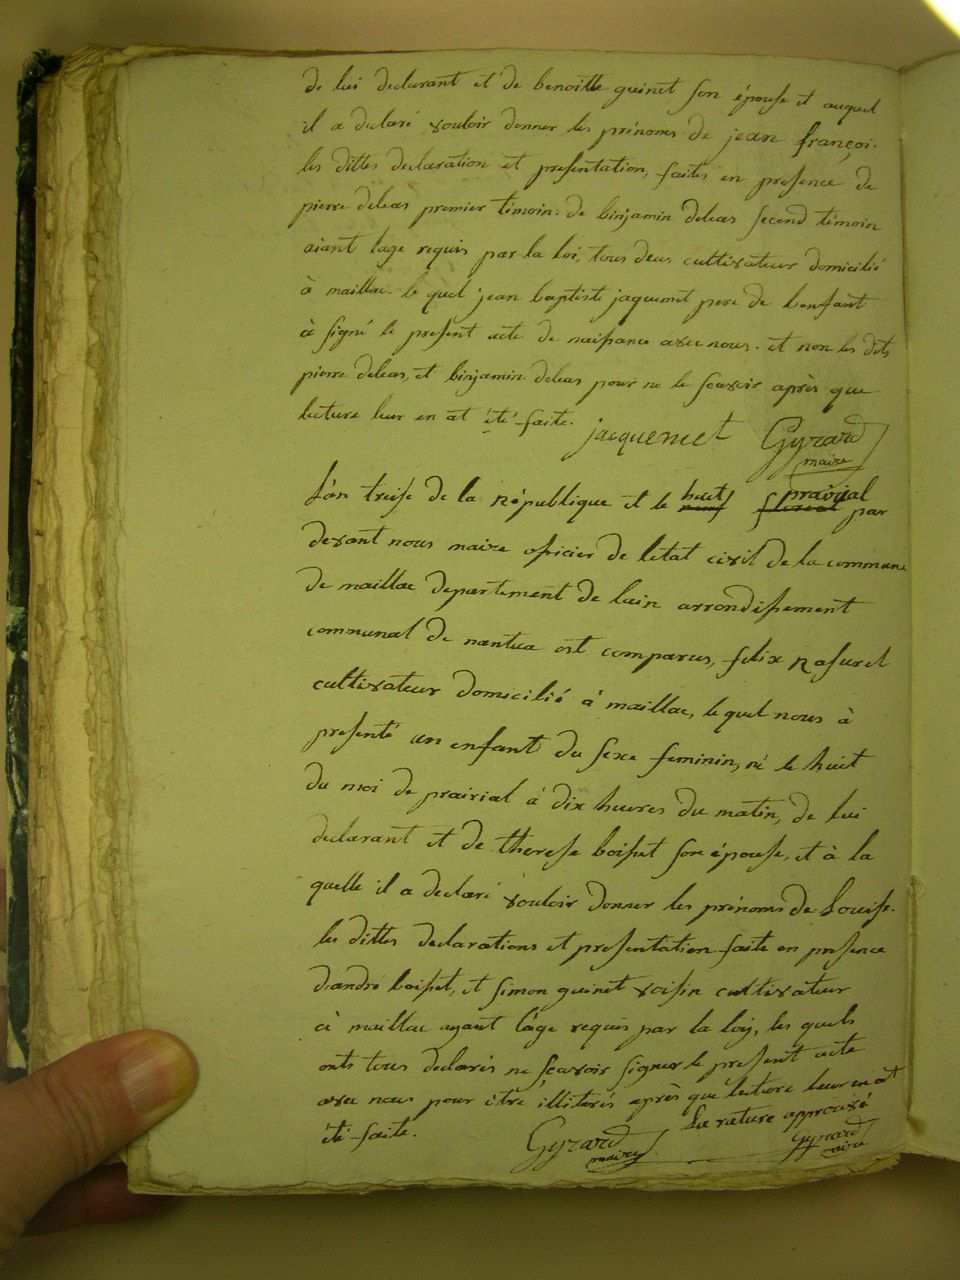 de lui declarant et de benoitte guinet son épouse et auquel
il a declaré vouloir donner les prénoms de jean françoi.
les dittes declaration et presentation, faites en presence de
pierre deleas premier temoin. de binjamin deleas second témoin
aiant lage requis par la loi, tous deus cultivateur domicilié
à maillac. le quel jean baptiste jaquemet pere de lenfant
à signé le present acte de naissance avec nous. et non les dits
pierre deleas, et binjamin deleas pour ne le scavoir après que
lecture leur en at été faite. jacquemet Gyrard
maire
L'an treise de la république et le huit prairial par
devant nous maire officier de letat civil de la commune
de maillac departement de lain arrondissement
communal de nantua est comparus, felix Rasurel
cultivateur domicilié à maillac, le quel nous à
presenté un enfant du sexe feminin, né le huit
du moi de prairial à dix heures du matin, de lui
declarant et de therese boisset son épouse, et à la
quelle il a declaré vouloir donner les prénoms de Louise.
les dittes declarations et presentation faite en presence
dandré boisset, et simon guinet voisin cultivateur
à maillac ayant l'âge requis par la loy, les quels
onts tous declarés ne scavoir signer le present acte
avec nous pour être illiterés après que lecture leur en at
été faite. La rature approuvé
Gyrard maire Gyrard maire